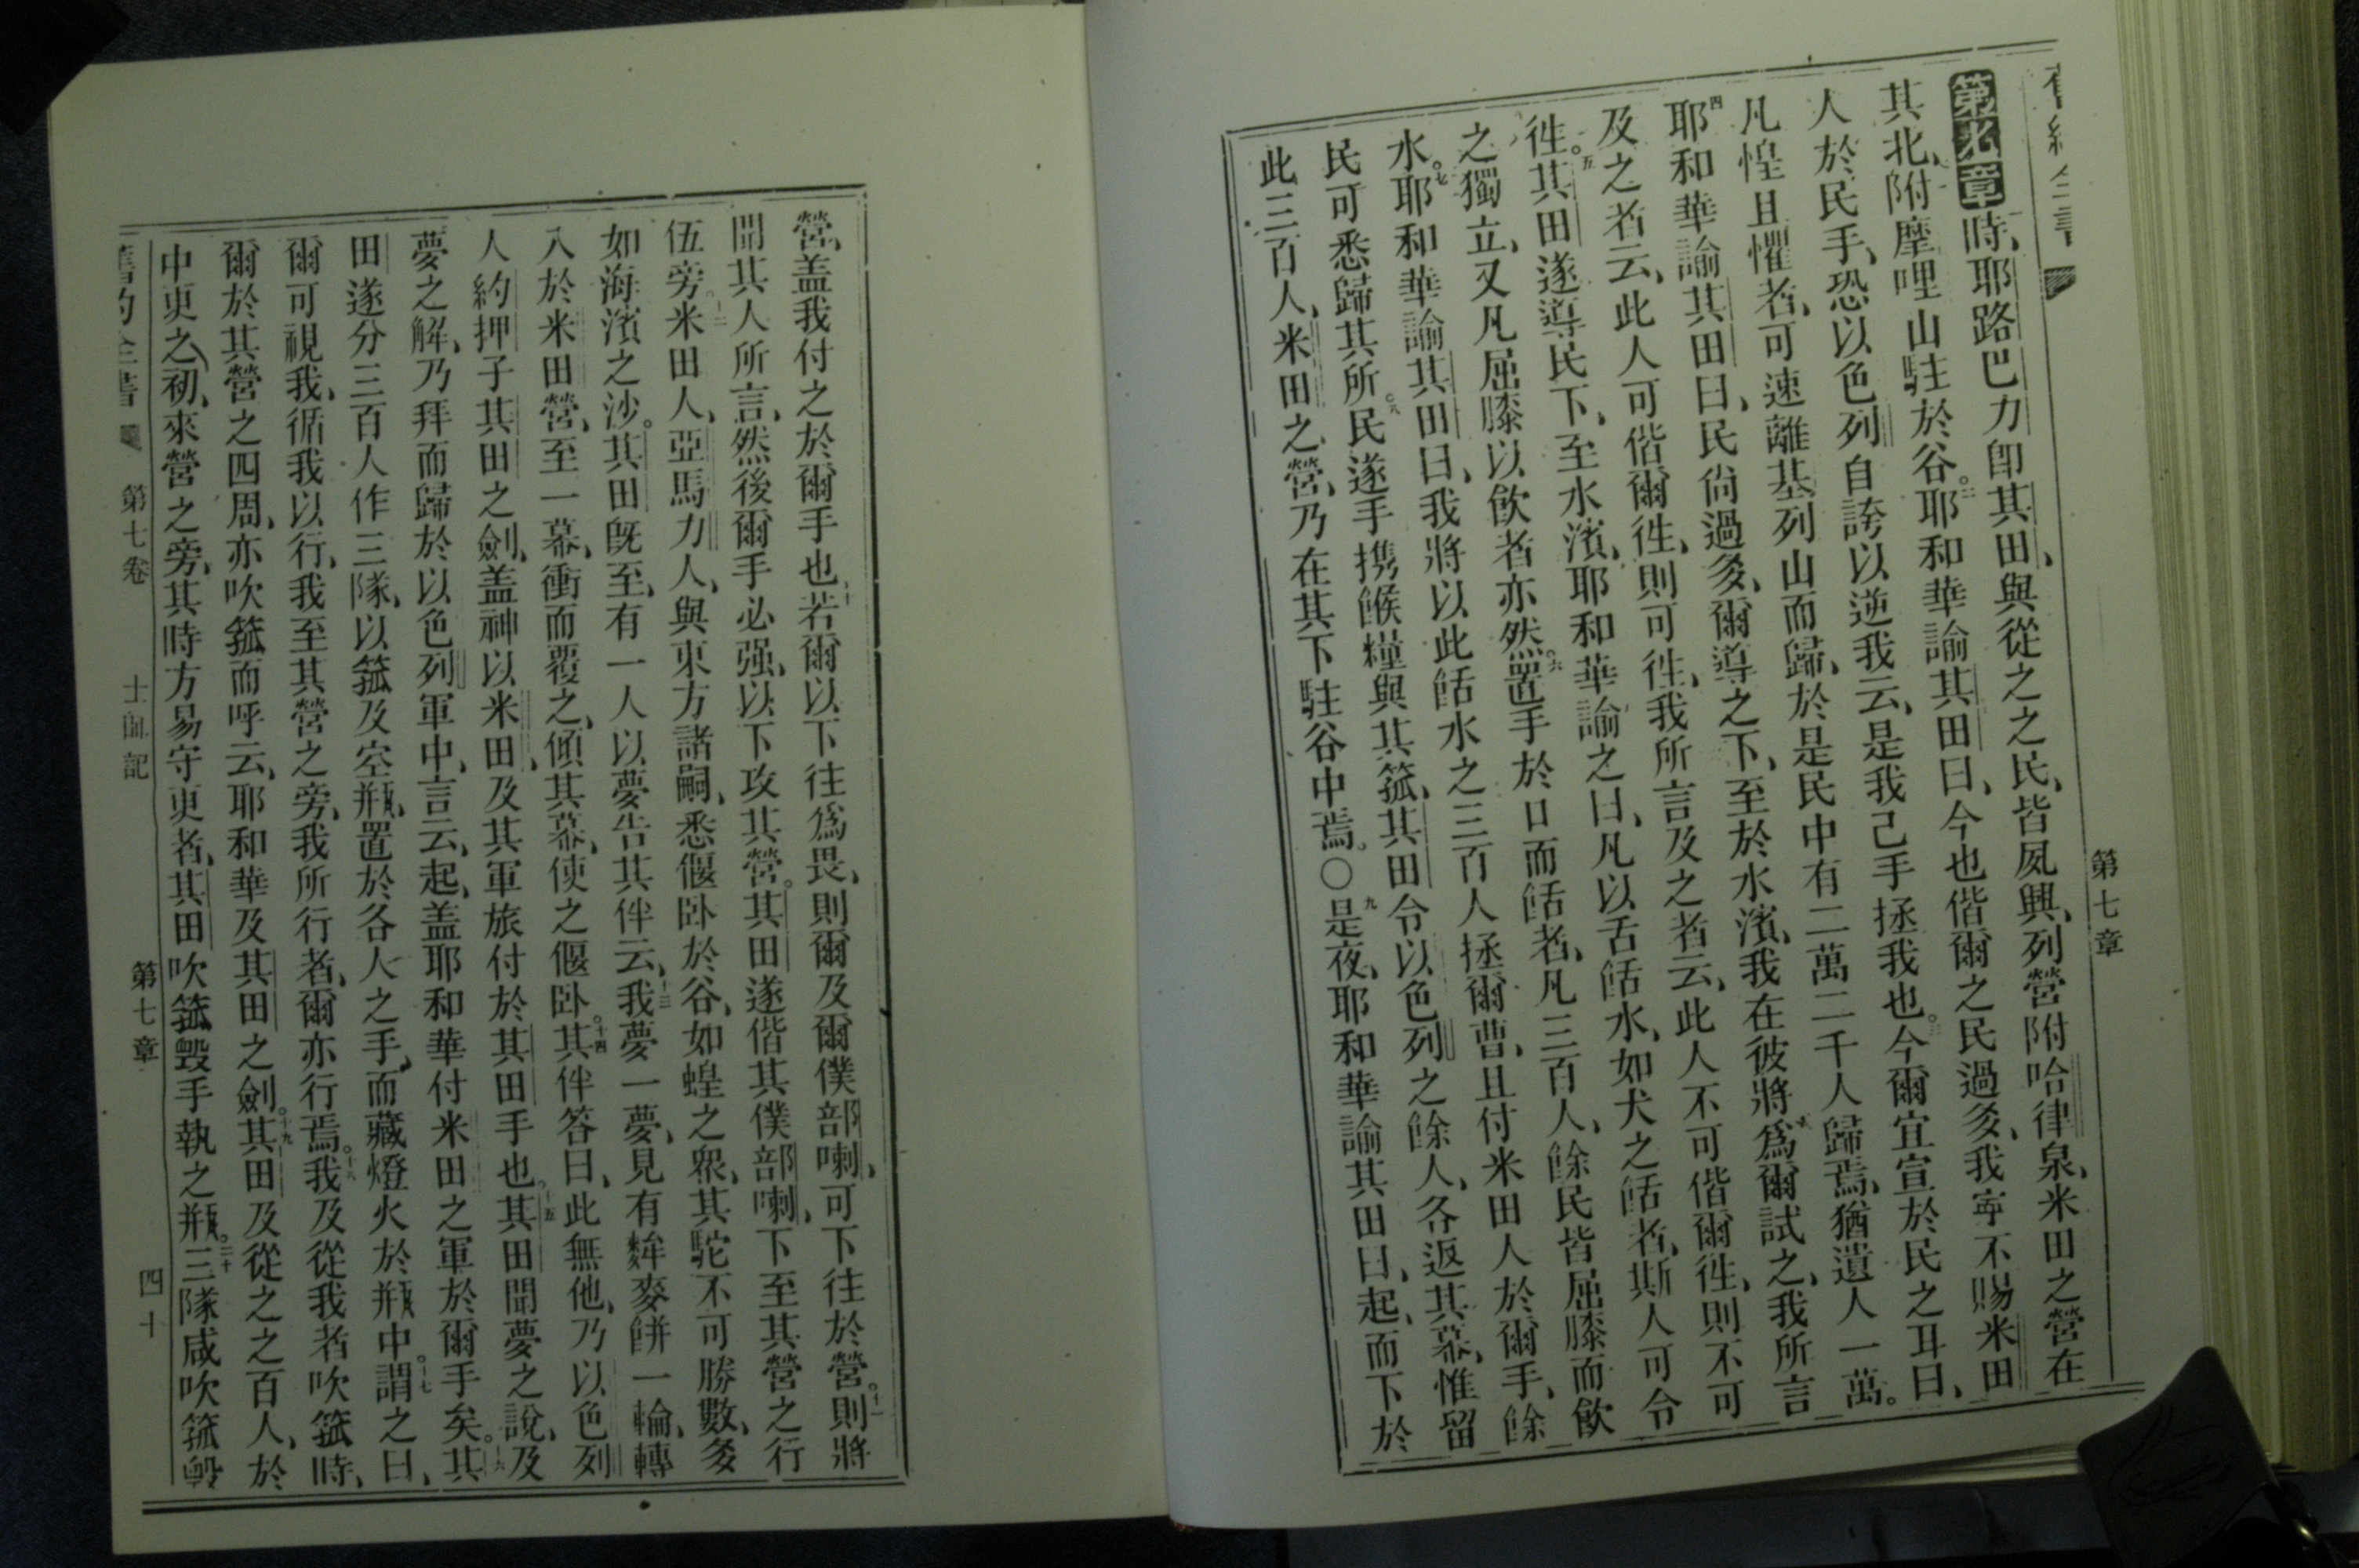 舊約全書
第七章
第七章時、耶路巴力卽其田、與從之之民、皆夙興、列營附哈律泉、米田之營在
其北、附摩哩山駐於谷。二耶和華諭其田曰、今也偕爾之民過多、我寧不賜米田
人於民手、恐以色列自誇以逆我云、是我己手拯我也。三今爾宜宣於民之耳曰、
凡惶且懼者、可速離基列山而歸、於是民中有二萬二千人歸焉、猶遺人一萬。
四耶和華諭其田曰、民尙過多、爾導之下、至於水濱、我在彼將爲爾試之、我所言
及之者云、此人可偕爾徃、則可徃、我所言及之者云、此人不可偕爾徃、則不可
徃。五其田遂導民下、至水濱、耶和華諭之曰、凡以舌餂水、如犬之餂者、斯人可令
之獨立、又凡屈膝以飮者亦然。六置手於口而餂者、凡三百人、餘民皆屈膝而飮
水。七耶和華諭其田曰、我將以此餂水之三百人拯爾曹、且付米田人於爾手、餘
民可悉歸其所。八民遂手擕餱糧與其箛、其田令以色列之餘人、各返其幕、惟留
此三百人、米田之營、乃在其下駐谷中焉。○九是夜、耶和華諭其田曰、起、而下於
營、盖我付之於爾手也。十若爾以下往爲畏、則爾及爾僕部喇、可下往於營。十一則將
聞其人所言、然後爾手必强、以下攻其營。其田遂偕其僕部喇、下至其營之行
伍旁。十二米田人、亞馬力人、與東方諸嗣、悉偃卧於谷、如蝗之衆、其駝不可勝數、多
如海濱之沙。其田旣至、有一人以夢告其伴云、十三我夢一夢、見有麰麥餅一輪、轉
入於米田營、至一幕、衝而覆之、傾其幕、使之偃卧。十四其伴答曰、此無他、乃以色列
人約押子其田之劍、盖神以米田、及其軍旅付於其田手也。十五其田聞夢之說、及
夢之解、乃拜而歸於以色列軍中、言云、起、盖耶和華付米田之軍於爾手矣。十六其
田遂分三百人作三隊、以箛及空瓶、置於各人之手、而藏燈火於瓶中。十七謂之曰、
爾可視我、循我以行、我至其營之旁、我所行者、爾亦行焉。十八我及從我者吹箛時、
爾於其營之四周、亦吹箛而呼云、耶和華及其田之劍。十九其田及從之之百人、於
中更之初、來營之旁、其時方易守更者、其田吹箛毀手執之瓶。二十三隊咸吹箛毀
舊約全書 第七卷 士師記 第七章 四十